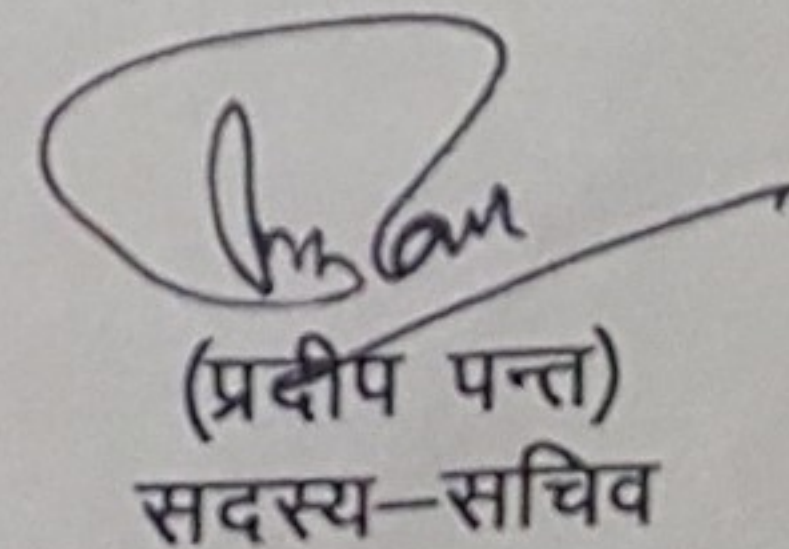 (प्रदीप पन्त)
सदस्य–सचिव